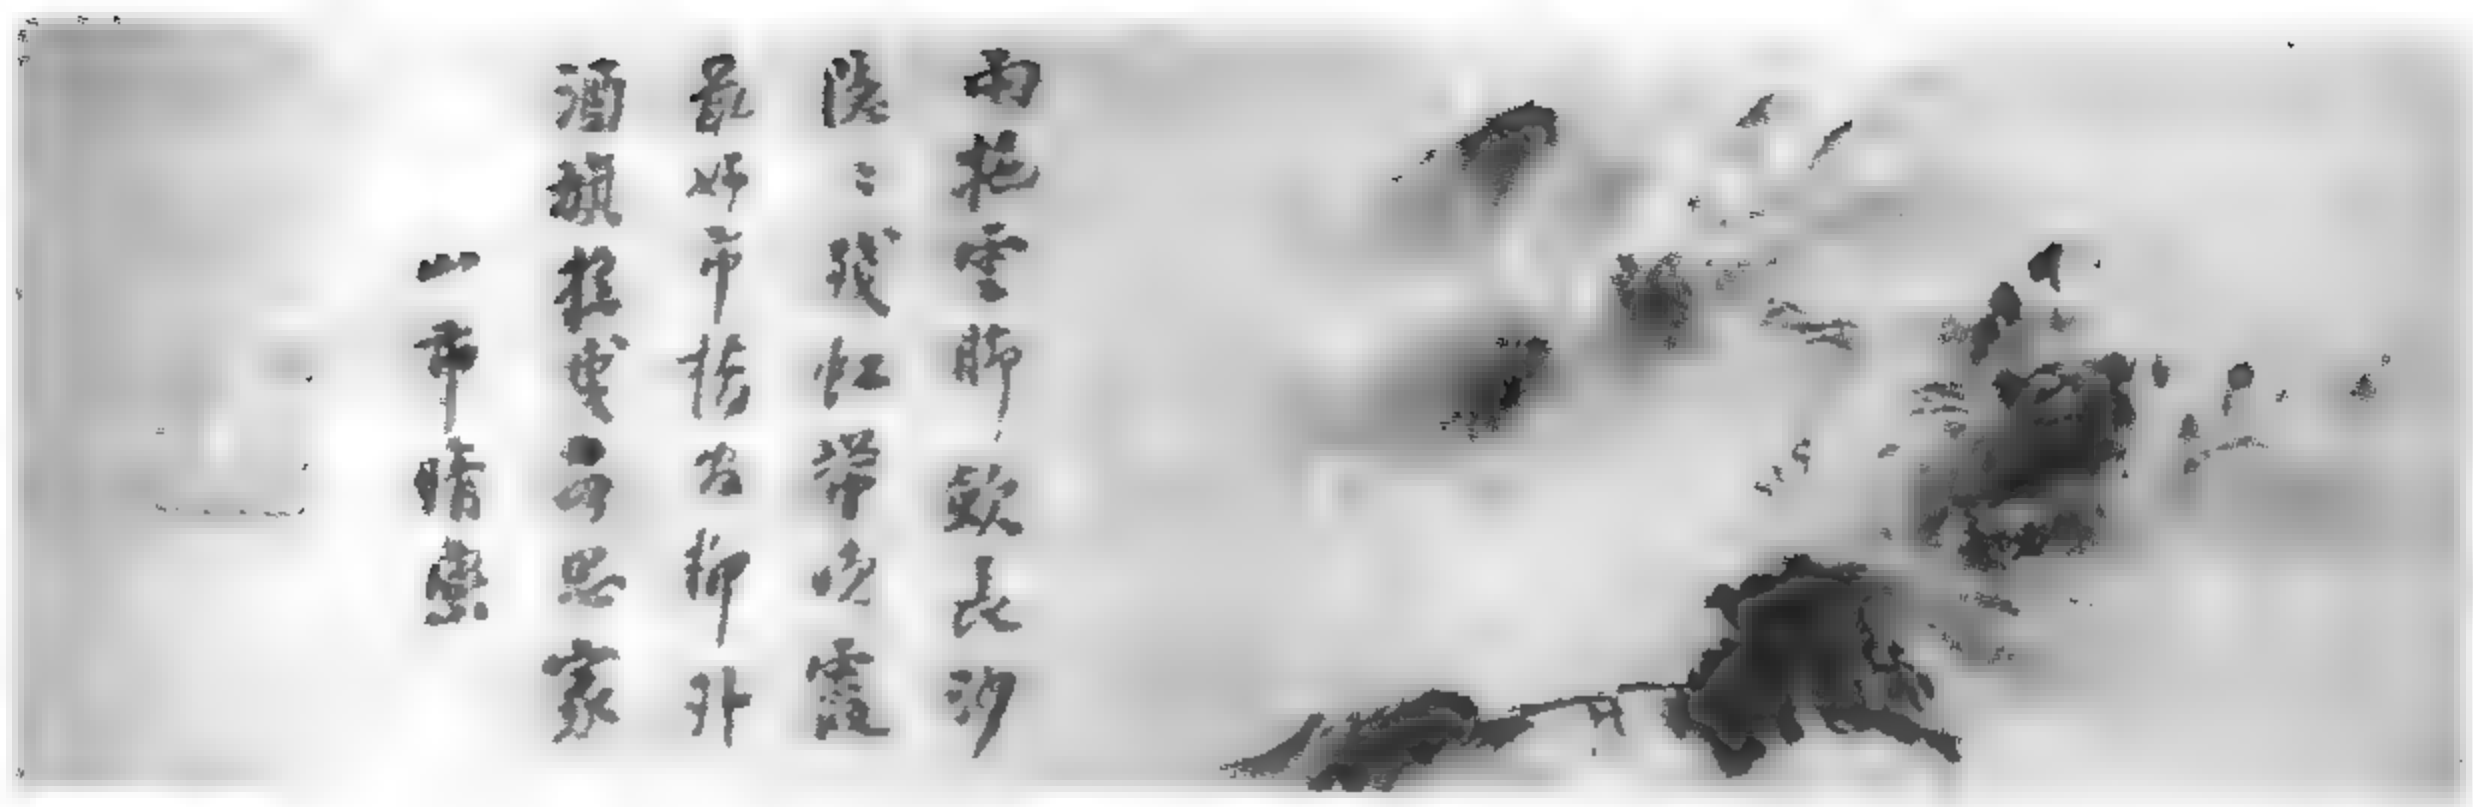 雨拖雲脚歛長沙
隱々殘虹帶晚霞
最好市橋官柳外
酒旗搖曳客思家
山市晴嵐